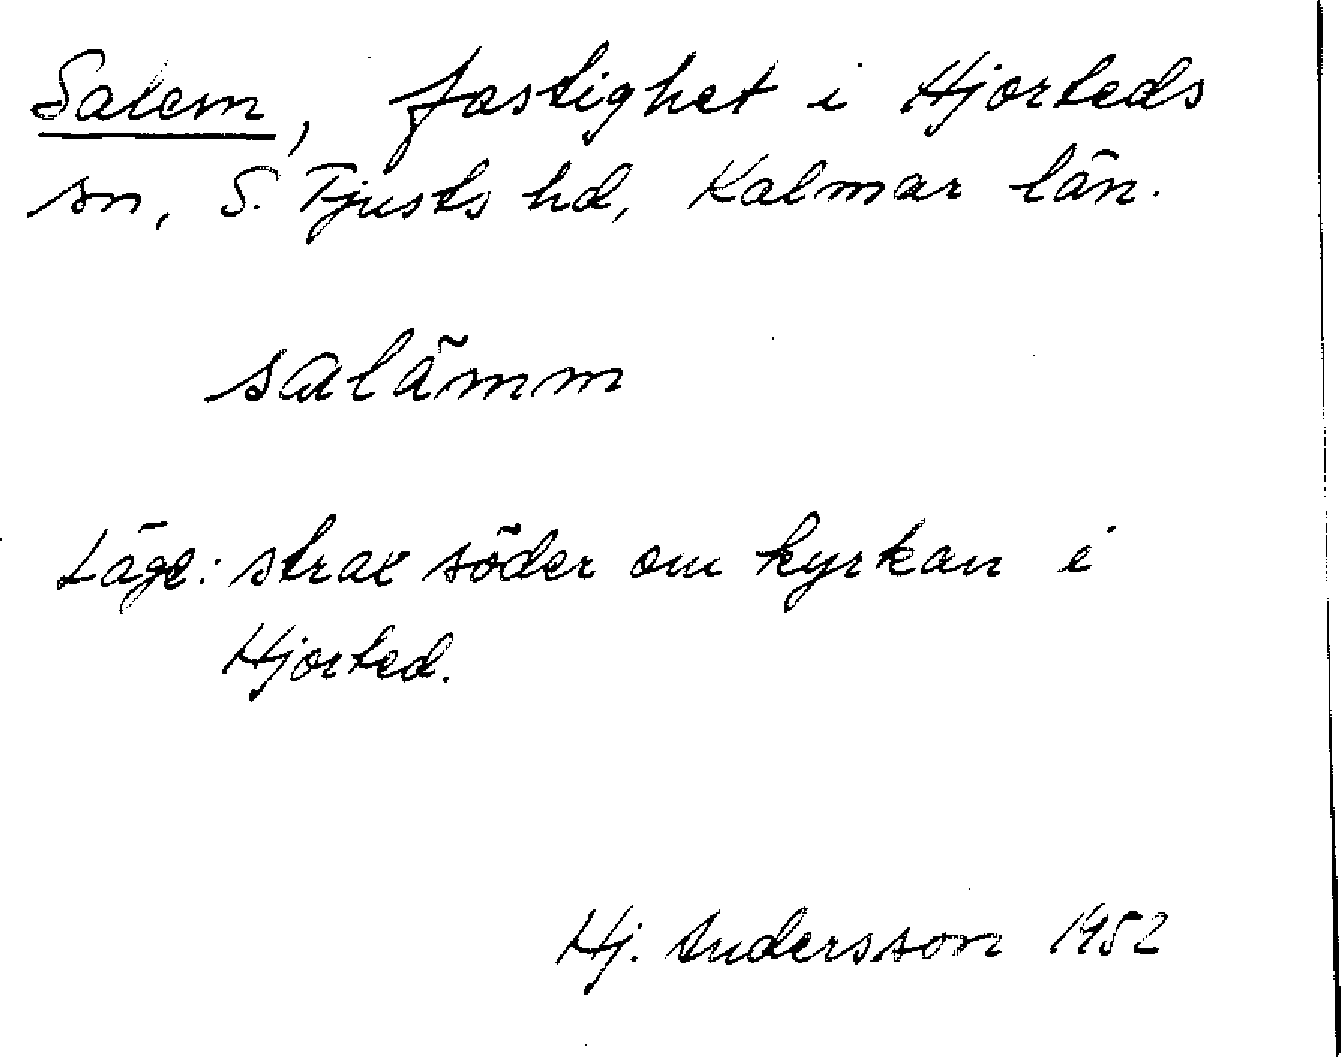 Salem, fastighet i Hjorteds
sn, S. Tjusts hd, Kalmar län.
salämm
Läge: strax söder om kyrkan i
Hjorted.
Hj. Andersson 1952